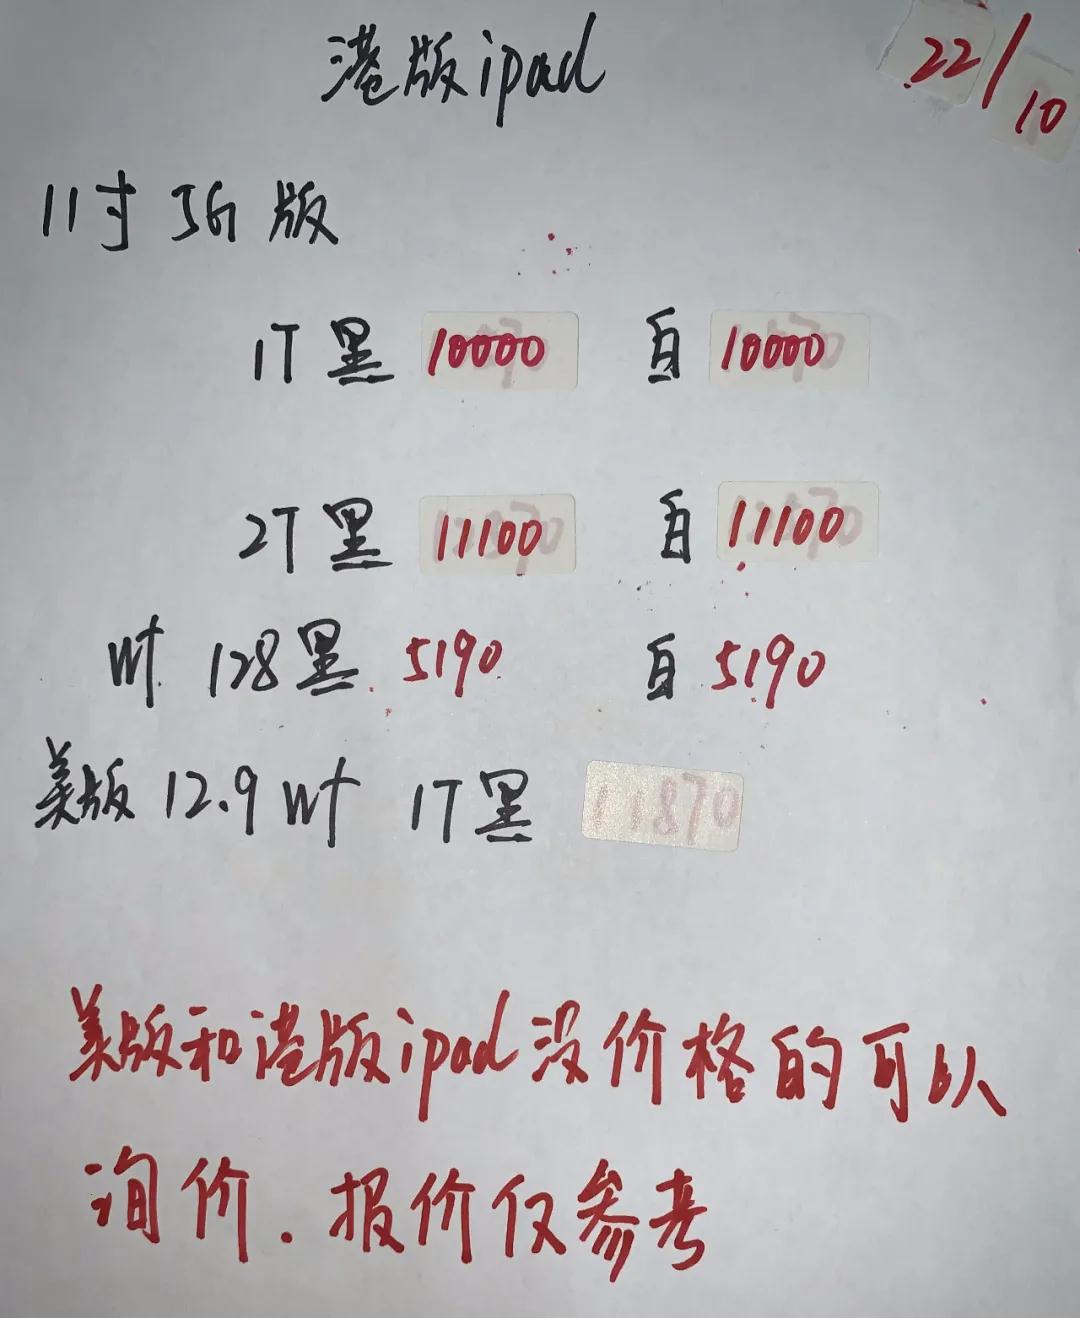 港版ipad
22/10
11寸 5G 版
1T 黑 10000 白 10000
2T 黑 11100 白 11100
wf 128 黑 5190 白 5190
美版 12.9 wf 1T 黑 11870
美版和港版ipad没价格的可以
询价.报价仅参考